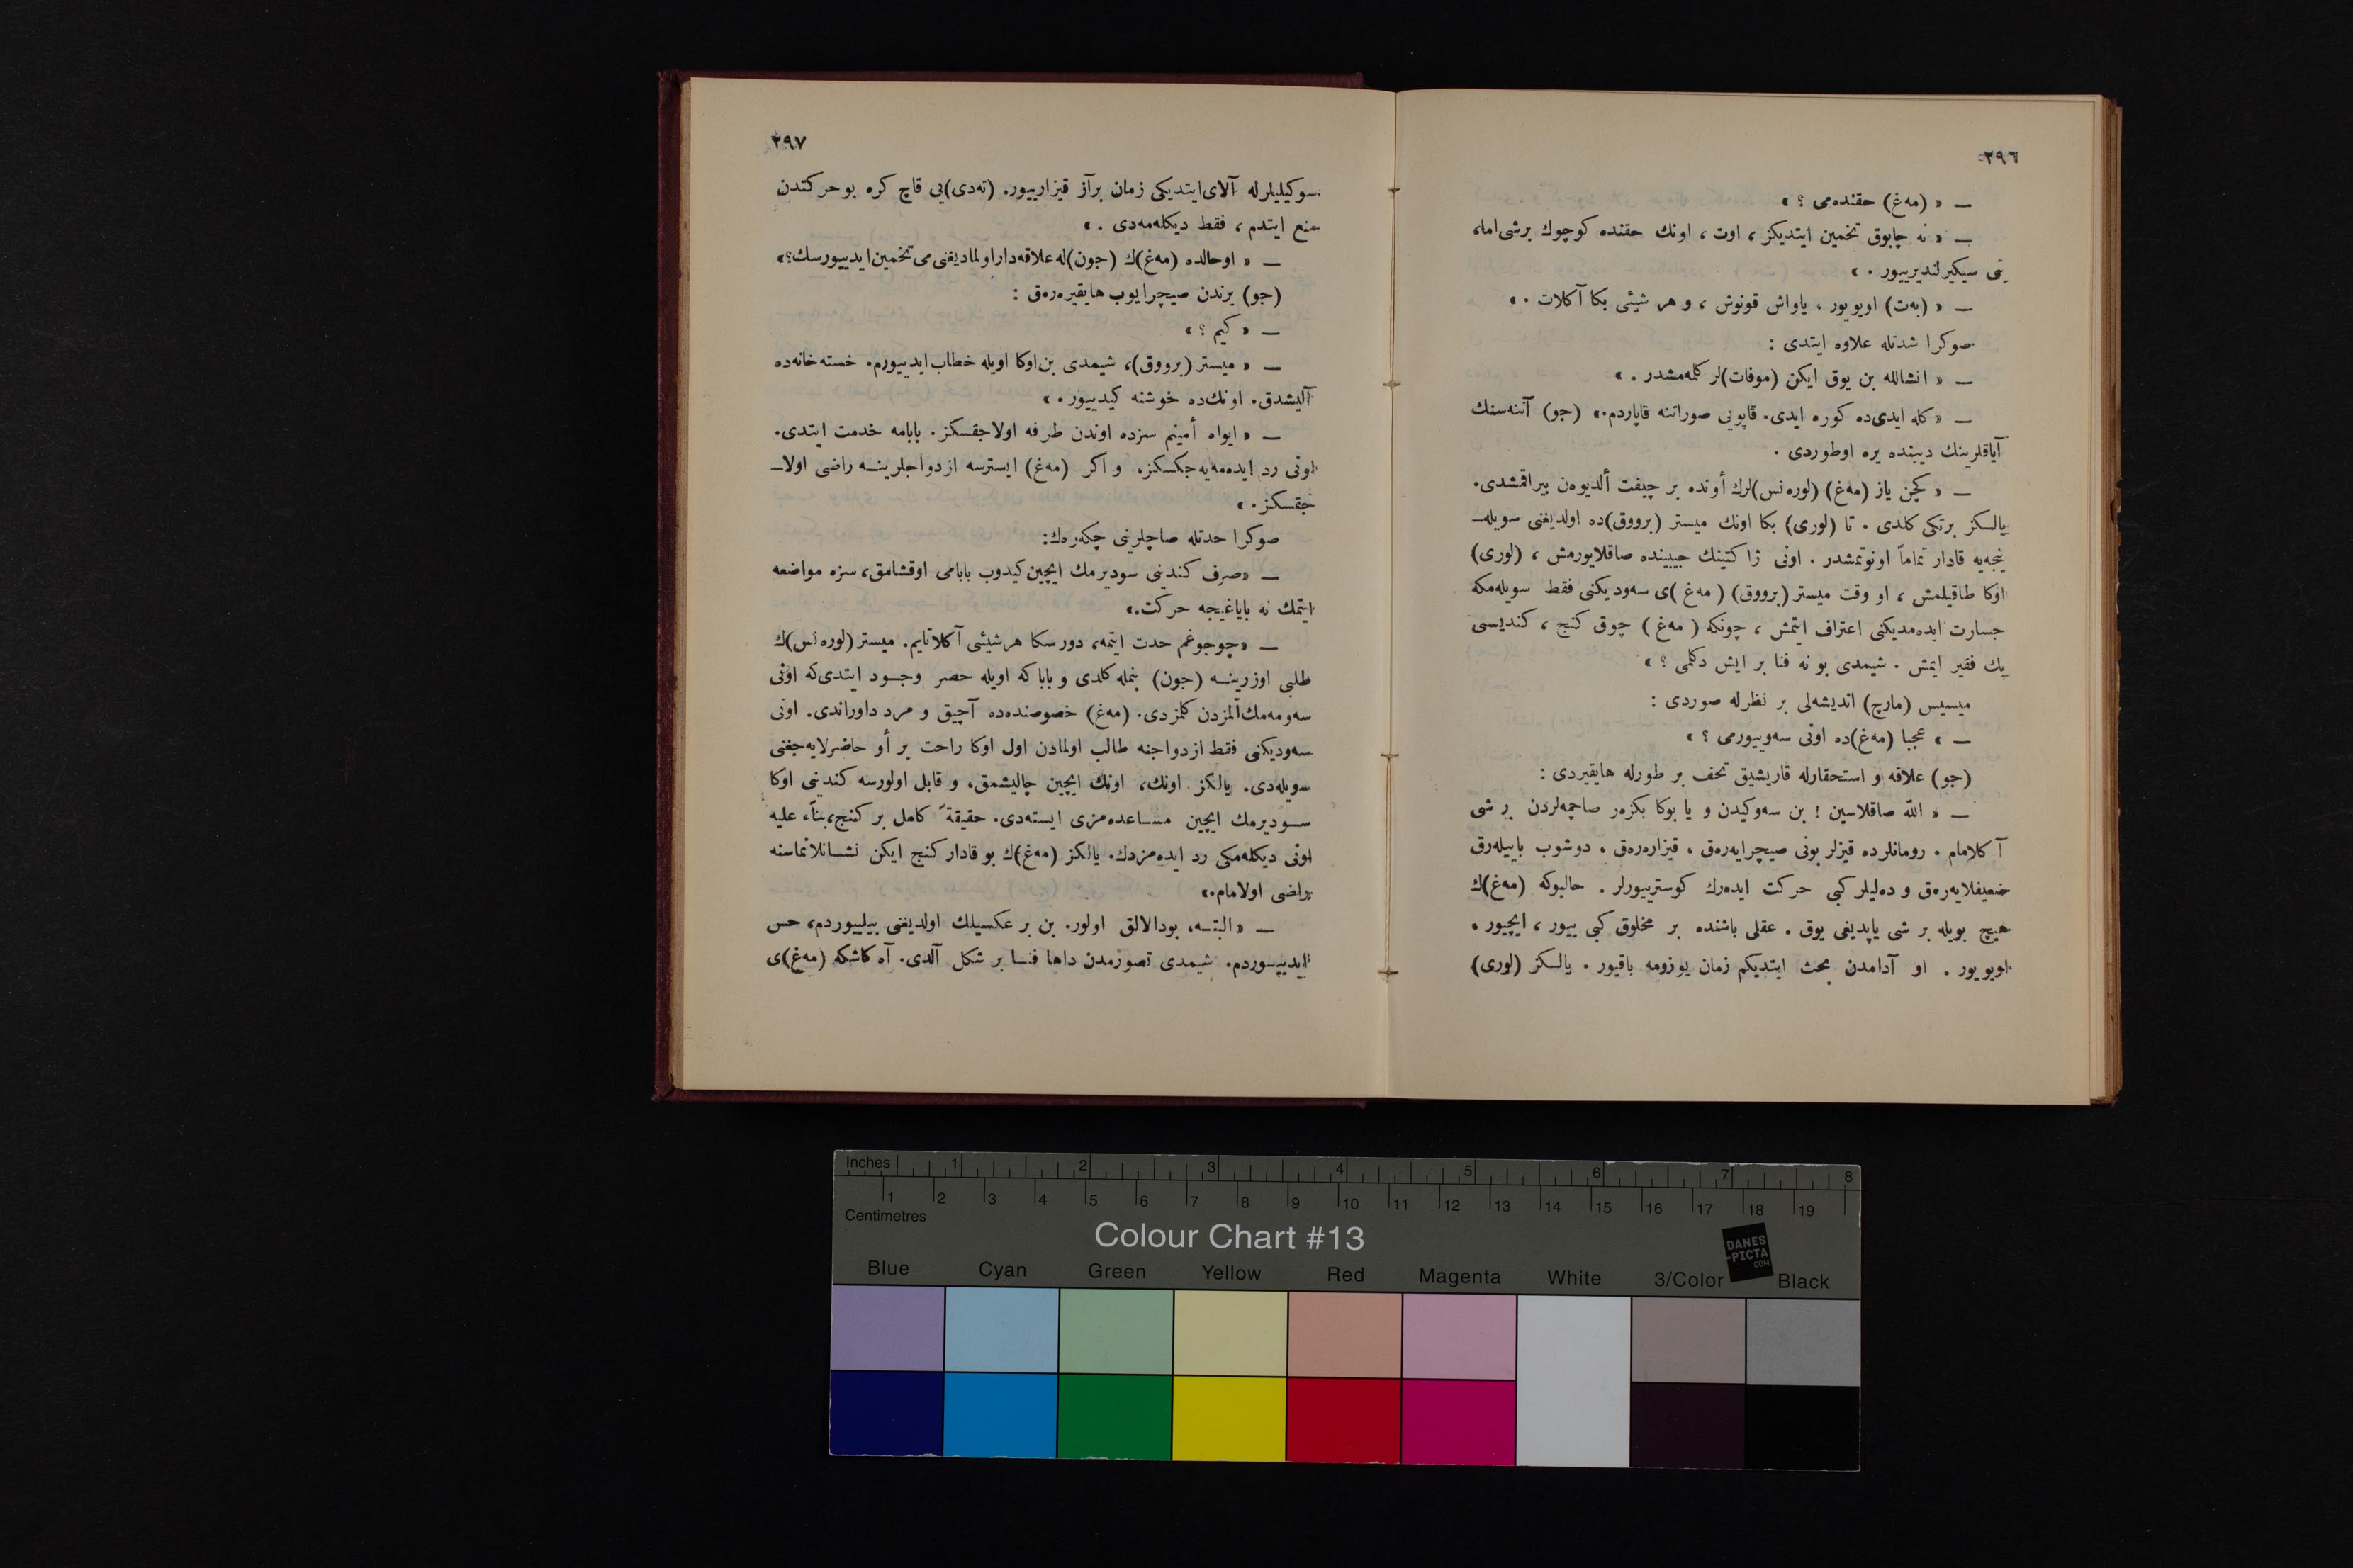 ٢٩٦
— « (مەغ) حقنده‌می ؟ »
— « نه چابوق تخمین ایتدیکز ، اوت ، اونك حقنده کوچوك برشی‌اما،
بنی سیکیرلندیرییور . »
— « (بەت) اویویور ، یاواش قونوش ، و هر شیئی بکا آکلات . »
صوکرا شدتله علاوه ایتدی :
— « انشالله بن یوق ایکن (موفات)لر کلمه‌مشدر . »
— « کله ایدی‌ده کوره ایدی. قاپویی صوراتنه قاپاردم.» (جو) آننه‌سنك
آیاقلرینك دیبنده یره اوطوردی .
— « کچن یاز (مەغ) (لوره‌نس)لرك أونده بر چیفت ألدیوه‌ن بیراقمشدی.
یالـکز برتکی کلدی . تا (لوری) بکا اونك میستر (برووق)ده اولدیغنی سویلهـ
ینجه‌یه قادار تماماً اونوتمشدر . اونی ژاکتینك جیبنده صاقلایورمش ، (لوری)
اوکا طاقیلمش ، او وقت میستر (برووق) (مەغ)ی سه‌ودیکنی فقط سویله‌مکه
جسارت ایده‌مدیکنی اعتراف ایتمش ، چونکه (مەغ) چوق کنج ، کندیسی
پك فقیر ایمش . شیمدی بو نه فنا بر ایش دکلمی ؟ »
میسیس (مارچ) اندیشه‌لی بر نظرله صوردی :
— « عجبا (مەغ)ده اونی سه‌ویپورمی ؟ »
(جو) علاقه و استحقارله قاریشیق تحف بر طورله هایقیردی :
— « الله صاقلاسین ! بن سه‌وکیدن و یا بوکا بکزەر صاچمه‌لردن بر شی
آکلامام . رومانلرده قیزلر بونی صیچرایه‌رەق ، قیزاره‌رەق ، دوشوب باییله‌رق
ضعیفلایه‌رەق و ده‌لیلر کبی حرکت ایده‌رك کوستریپورلر . حالبوکه (مەغ)ك
هیچ بویله بر شی یاپدیغی یوق . عقلی باشنده بر مخلوق کبی ییپور ، ایچیور ،
اویویور . او آدامدن بحث ایتدیکم زمان یوزومه باقیور . یالـکز (لوری)
٢٩٧
سوکیلیلرله آلای‌ایتدیکی زمان برآز قیزارییور. (ته‌دی)یی قاچ کره بوحرکتدن
منع ایتدم ، فقط دیکله‌مه‌دی . »
— « اوحالده (مەغ)ك (جون)له علاقه‌دار اولمادیغنی‌می تخمین‌ایدییورسك؟»
(جو) یرندن صیچرایوب هایقیره‌رەق :
— « کیم ؟ »
— « میستر (برووق)، شیمدی بن‌اوکا اویله خطاب‌ایدییورم. خسته‌خانه‌ده
آلیشدق. اونك‌ده خوشنه کیدییور . »
— « ایواه أمینم سزده اوندن طرفه اولاجقسکز. بابامه خدمت ایتدی.
اونی رد ایده‌مه‌یه‌جکسکز، و اکر (مەغ) ایسترسه ازدواجلرینـه راضی اولاـ
جقسکز . »
صوکرا حدتله صاچلرینی چکه‌رەك:
— «صرف کندینی سودیرمك ایچین‌کیدوب بابامی اوقشامق، سزه مواضعه
ایتمك نه بایاغیجه حرکت.»
— «چوجوغم حدت ایتمه، دورسکا هرشیئی آکلاتایم. میستر (لوره‌نس)ك
طلبی اوزرینـه (جون) بنمله کلدی و باباکه اویله حصر وجـود ایتدی‌که اونی
سه‌ومه‌مك‌المزدن کلمزدی. (مەغ) خصوصنده‌ده آچیق و مرد داوراندی. اونی
سه‌ودیکنی فقط ازدواجنه طالب اولمادن اول اوکا راحت بر أو حاضرلایه‌جغنی
سویله‌دی. یالکز اونك، اونك ایچین چالیشمق، و قابل اولورسه کندینی اوکا
سـودیرمك ایچین مسـاعده‌مزی ایسته‌دی. حقیقةً کامل بر کنج، بناءً علیه
اونی دیکله‌مکی رد ایده‌مزدك. یالکز (مەغ)ك بوقادار کنج ایکن نشـانلاتماسنه
راضی اولامام.»
— «البتـه، بودالالق اولور. بن بر عکسیلك اولدیغنی بیلییوردم، حس
ایدییـوردم. شیمدی تصورمدن داها فنـا بر شکل آلدی. آه کاشکه (مەغ)ی
Inches 1 2 3 4 5 6 7 8
1 2 3 4 5 6 7 8 9 10 11 12 13 14 15 16 17 18 19
Centimetres
Colour Chart #13
DANES
-PICTA
.COM
Blue Cyan Green Yellow Red Magenta White 3/Color Black